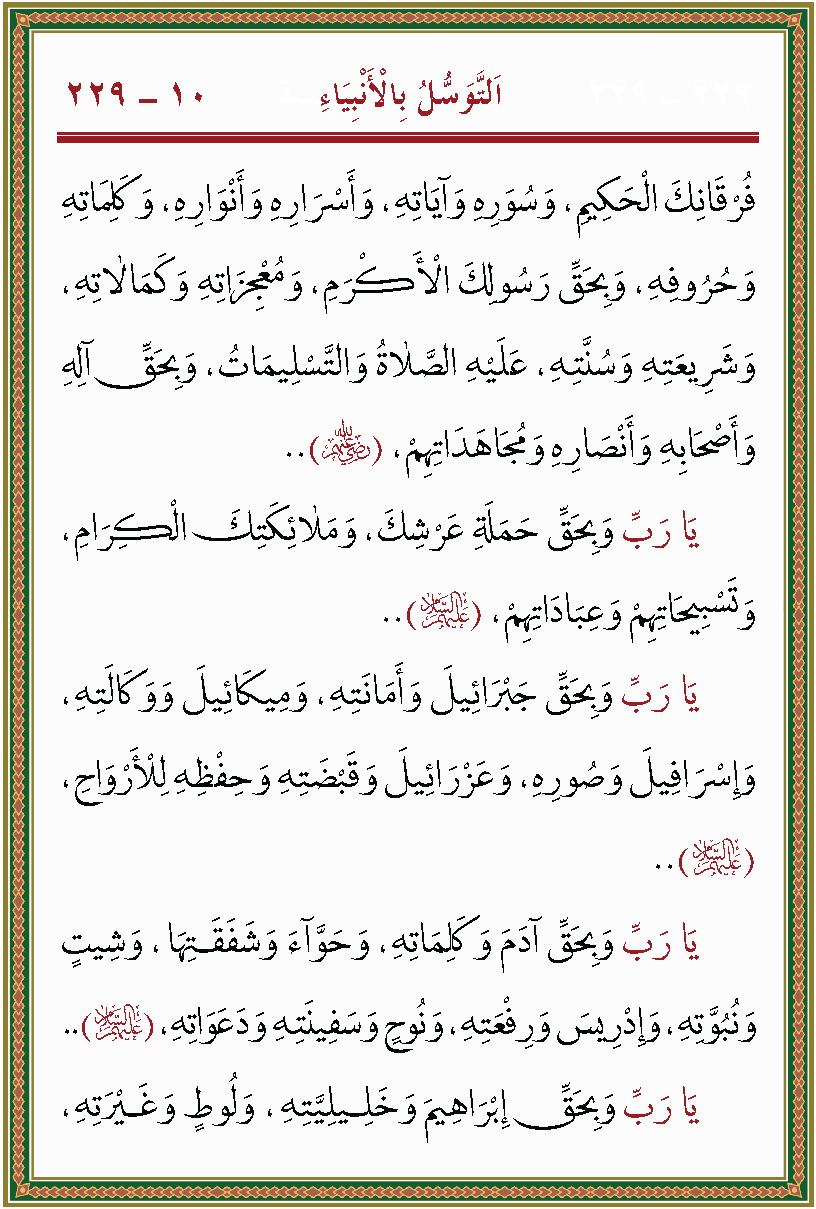 اَلتَّوَسُّلُ بِالْأَنْبِيَاءِ ١٠ – ٢٢٩
فُرْقَانِكَ الْحَكِيمِ، وَسُوَرِهِ وَآيَاتِهِ، وَأَسْرَارِهِ وَأَنْوَارِهِ، وَكَلِمَاتِهِ
وَحُرُوفِهِ، وَبِحَقِّ رَسُولِكَ الْأَكْرَمِ، وَمُعْجِزَاتِهِ وَكَمَالَاتِهِ،
وَشَرِيعَتِهِ وَسُنَّتِهِ، عَلَيْهِ الصَّلَاةُ وَالتَّسْلِيمَاتُ، وَبِحَقِّ آلِهِ
وَأَصْحَابِهِ وَأَنْصَارِهِ وَمُجَاهَدَاتِهِمْ، (رضي الله عنهم)..
يَا رَبِّ وَبِحَقِّ حَمَلَةِ عَرْشِكَ، وَمَلَائِكَتِكَ الْكِرَامِ،
وَتَسْبِيحَاتِهِمْ وَعِبَادَاتِهِمْ، (عليهم السلام)..
يَا رَبِّ وَبِحَقِّ جَبْرَائِيلَ وَأَمَانَتِهِ، وَمِيكَائِيلَ وَوَكَالَتِهِ،
وَإِسْرَافِيلَ وَصُورِهِ، وَعَزْرَائِيلَ وَقَبْضَتِهِ وَحِفْظِهِ لِلْأَرْوَاحِ،
(عليهم السلام)..
يَا رَبِّ وَبِحَقِّ آدَمَ وَكَلِمَاتِهِ، وَحَوَّآءَ وَشَفَقَتِهَا، وَشِيثٍ
وَنُبُوَّتِهِ، وَإِدْرِيسَ وَرِفْعَتِهِ، وَنُوحٍ وَسَفِينَتِهِ وَدَعَوَاتِهِ، (عليهم السلام)..
يَا رَبِّ وَبِحَقِّ إِبْرَاهِيمَ وَخَلِيلِيَّتِهِ، وَلُوطٍ وَغَيْرَتِهِ،